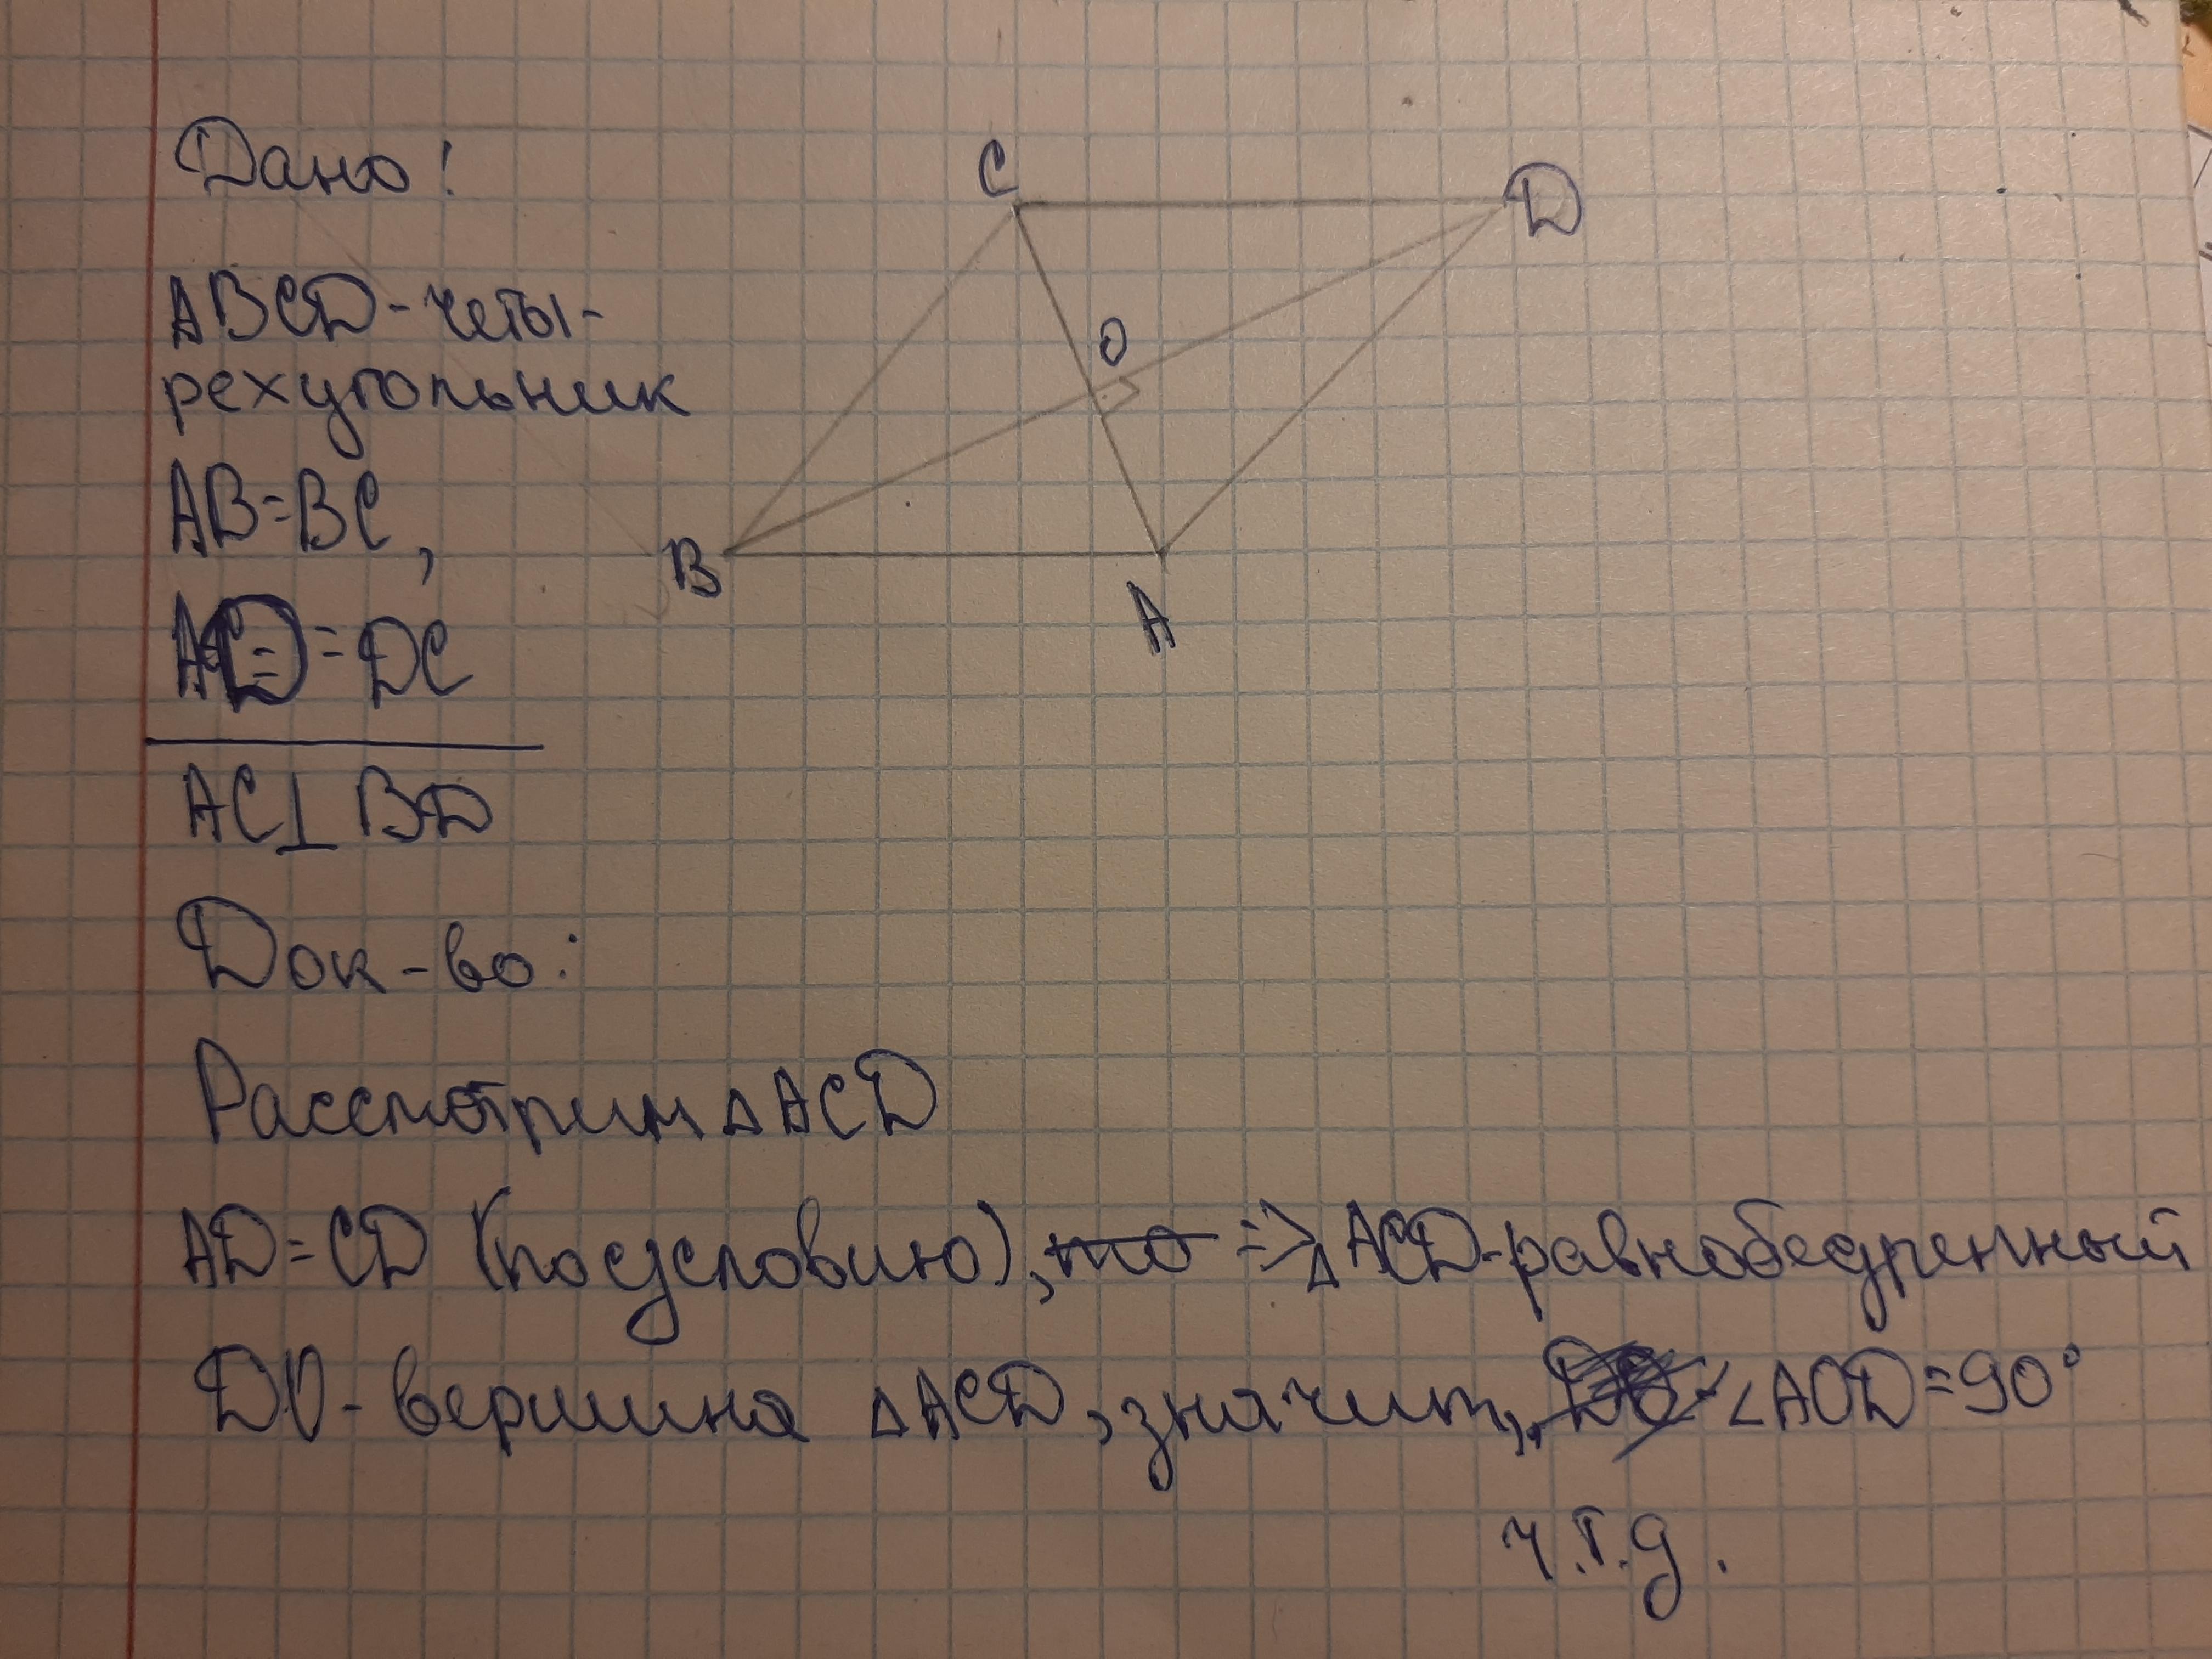 Дано:
ABCD - четы-
рехугольник
AB=BC,
AD=DC
AC⊥BD
C
D
O
B
A
Док-во:
Рассмотрим △ACD
AD=CD (по условию), то => △ACD-равнобедренный
DO - вершина △ACD, значит, ∠AOD=90°
ч.т.д.